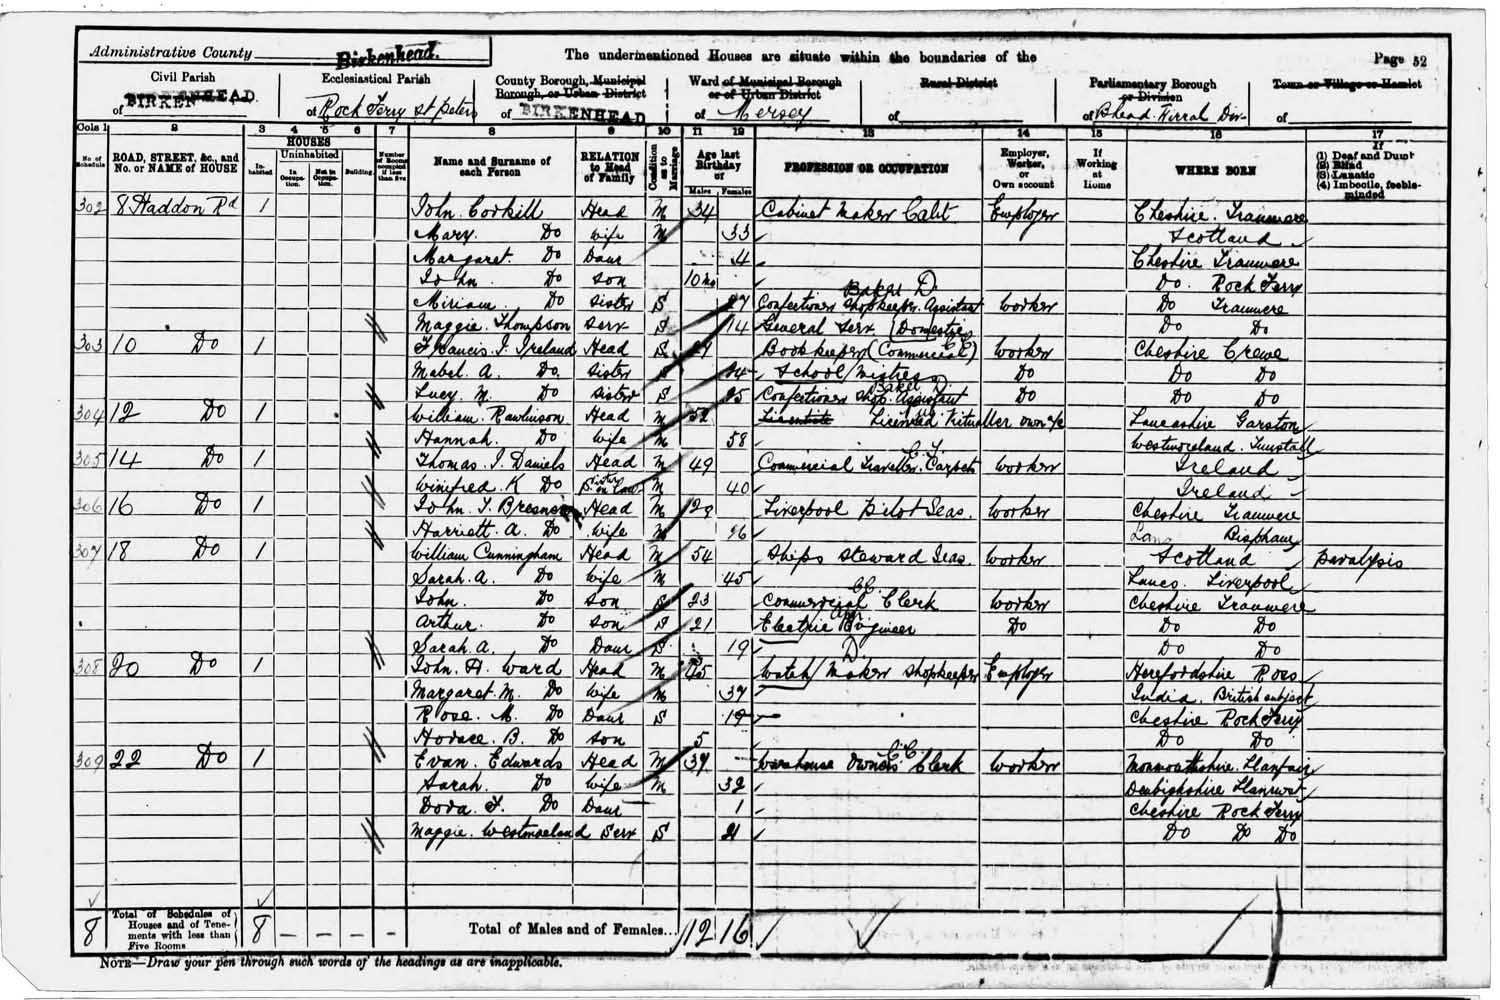 Administrative County Birkenhead.
The undermentioned Houses are situate within the boundaries of the
Page 52
Civil Parish of BIRKENHEAD
Ecclesiastical Parish of Rock Ferry St Peters
County Borough, Municipal Borough, or Urban District of BIRKENHEAD
Ward of Municipal Borough or of Urban District of Mersey
Rural District of
Parliamentary Borough or Division of Bhead Wirral Div
Town or Village or Hamlet of
Cols 1 2 3 4 5 6 7 8 9 10 11 12 13 14 15 16 17
No. of Schedule
ROAD, STREET, &c., and No. or NAME of HOUSE
HOUSES
Inhabited
Uninhabited
In Occupation.
Not in Occupation.
Building.
Number of Rooms occupied if less than five
Name and Surname of each Person
RELATION to Head of Family
Condition as to Marriage
Age last Birthday of
Males Females
PROFESSION OR OCCUPATION
Employer, Worker, or Own account
If Working at Home
WHERE BORN
If (1) Deaf and Dumb (2) Blind (3) Lunatic (4) Imbecile, feeble-minded
302 8 Haddon Rd 1 John Corkill Head M 34 Cabinet Maker Cabt Employer Cheshire. Tranmere
Mary. Do Wife M 33 Scotland
Margaret. Do Daur 4 Cheshire Tranmere
John. Do Son 10 mo Do. Rock Ferry
Miriam. Do Sister S 27 Confectioner Shopkeeper Assistant Baker D. Worker Do Tranmere
Maggie. Thompson Serv S 14 General Serv. (Domestic) Do Do
303 10 Do 1 Francis. J. Ireland Head S 27 Bookkeeper (Commercial) CC Worker Cheshire Crewe
Mabel. A. Do. Sister S 24 School Mistress Do Do Do
Lucy. M. Do Sister S 25 Confectioner Shop. Assistant Baker D. Do Do Do
304 12 Do 1 William. Rawlinson Head M 52 Licensed Vitualler own a/c Lancashire Garston
Hannah. Do Wife M 58 Westmoreland. Tunstall
305 14 Do 1 Thomas. J. Daniels Head M 49 Commercial Traveller. Carpets C.T. Worker Ireland
Winifred. K Do Sister in Law M 40 Ireland
306 16 Do 1 John. T. Head M 29 Liverpool Pilot Seas. Worker Cheshire Tranmere
Harriett. A. Do Wife M 26 Lanc Bispham
307 18 Do 1 William Cunningham Head M 54 Ships Steward Seas. Worker Scotland paralysis
Sarah. A. Do Wife M 45 Lancs. Liverpool
John. Do Son S 23 Commercial Clerk CC. Worker Cheshire Tranmere
Arthur. Do Son S 21 Electric Engineer Do Do Do
Sarah. A. Do Daur S 19 Do Do
308 20 Do 1 John. H. Ward Head M 45 Watch Maker Shopkeeper D Employer Herefordshire Ross
Margaret. M. Do Wife M 37 India. British subject
Rose. M. Do Daur S 19 Cheshire Rock Ferry
Horace. B. Do Son 5 Do Do
309 22 Do 1 Evan. Edwards Head M 37 Warehouse Owners Clerk C.C. Worker Monmouthshire. Llanfair
Sarah. Do Wife M 32 Denbighshire Llanrwst
Dora. F. Do Daur 1 Cheshire Rock Ferry
Maggie. Westmoreland Serv S 21 Do Do Do
8 Total of Schedules of Houses and of Tenements with less than Five Rooms 8 – – – – Total of Males and of Females... 12 16
NOTE—Draw your pen through such words of the headings as are inapplicable.